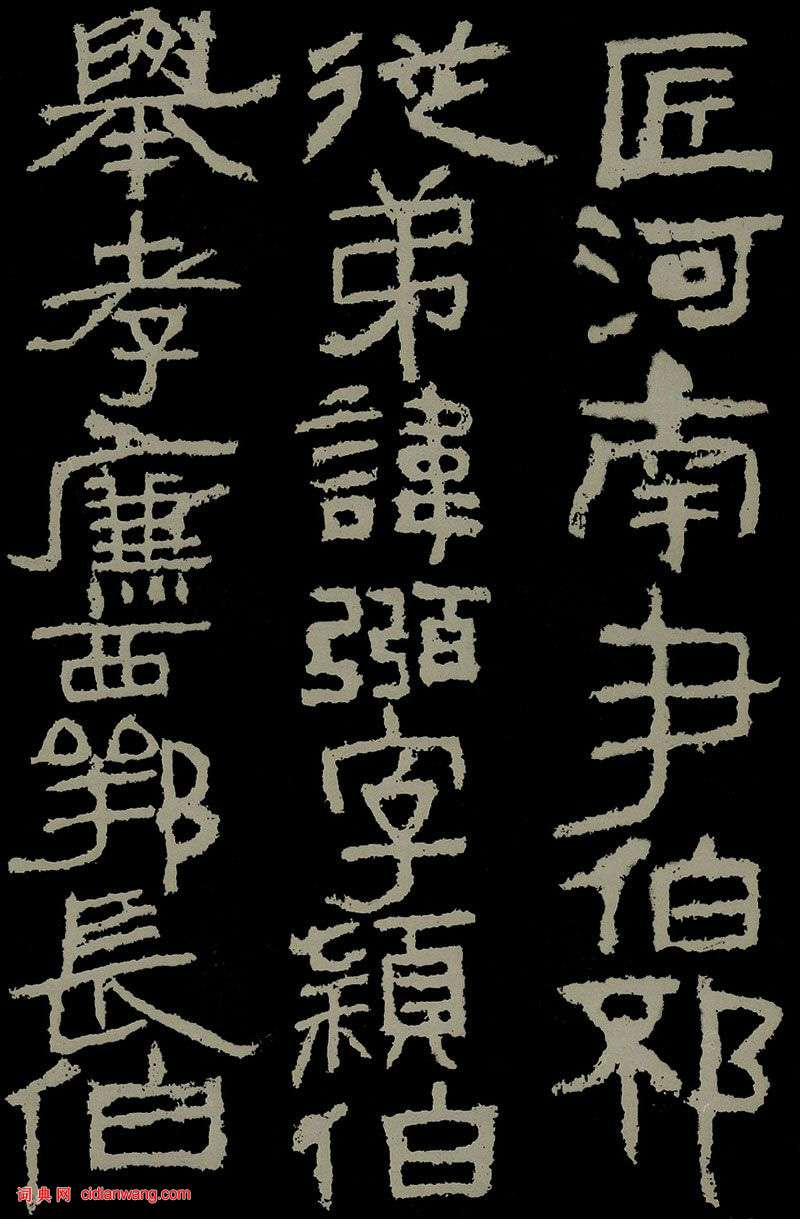 匠河南尹伯邳
從弟諱弼字穎伯
舉孝廉西鄂長伯
词典网 cidianwang.com